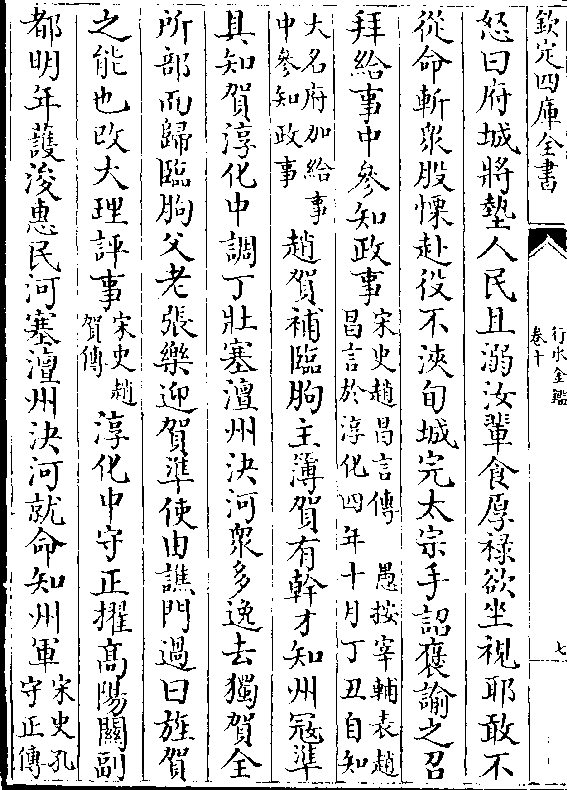 欽定四庫全書
行水金鑑
卷十
七
怒曰府城將墊人民且溺汝輩食厚祿欲坐視耶敢不
從命斬衆股慄赴役不浹旬城完太宗手詔褒諭之召
拜給事中參知政事宋史趙昌言傳 愚按宰輔表趙
昌言於淳化四年十月丁丑自知
大名府加給事
中參知政事
趙賀補臨朐主簿賀有幹才知州冦準
具知賀淳化中調丁壯塞澶州決河衆多逸去獨賀全
所部而歸臨朐父老張樂迎賀準使由譙門過曰旌賀
之能也改大理評事宋史趙
賀傳
淳化中守正擢髙陽關副
都明年䕶浚惠民河塞澶州決河就命知州軍宋史孔
守正傳